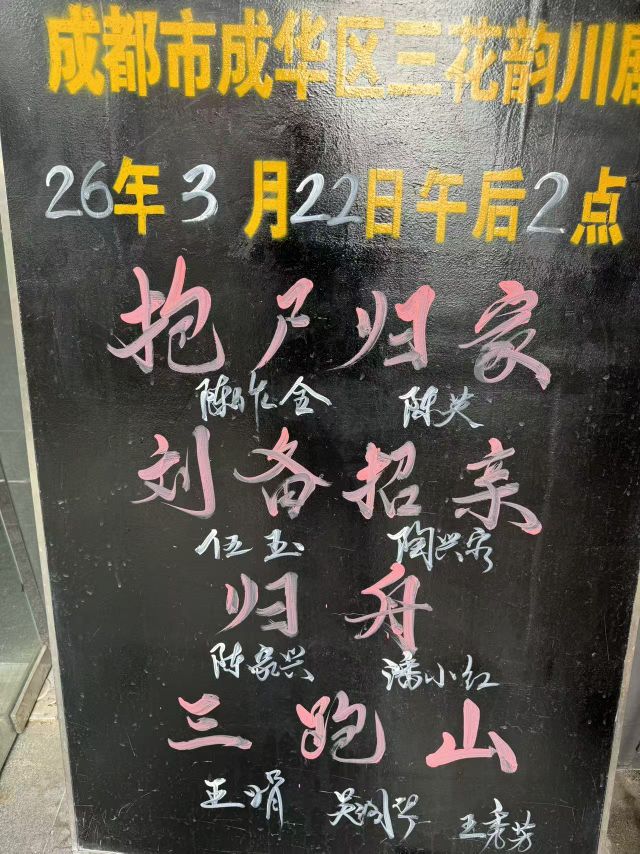 成都市成华区三花韵川剧
26年3月22日午后2点
抱尸归家
陈作全 陈英
刘备招亲
伍玉 陶兴家
归舟
陈家兴 潘小红
三跑山
王娟 吴 华 王秀芳